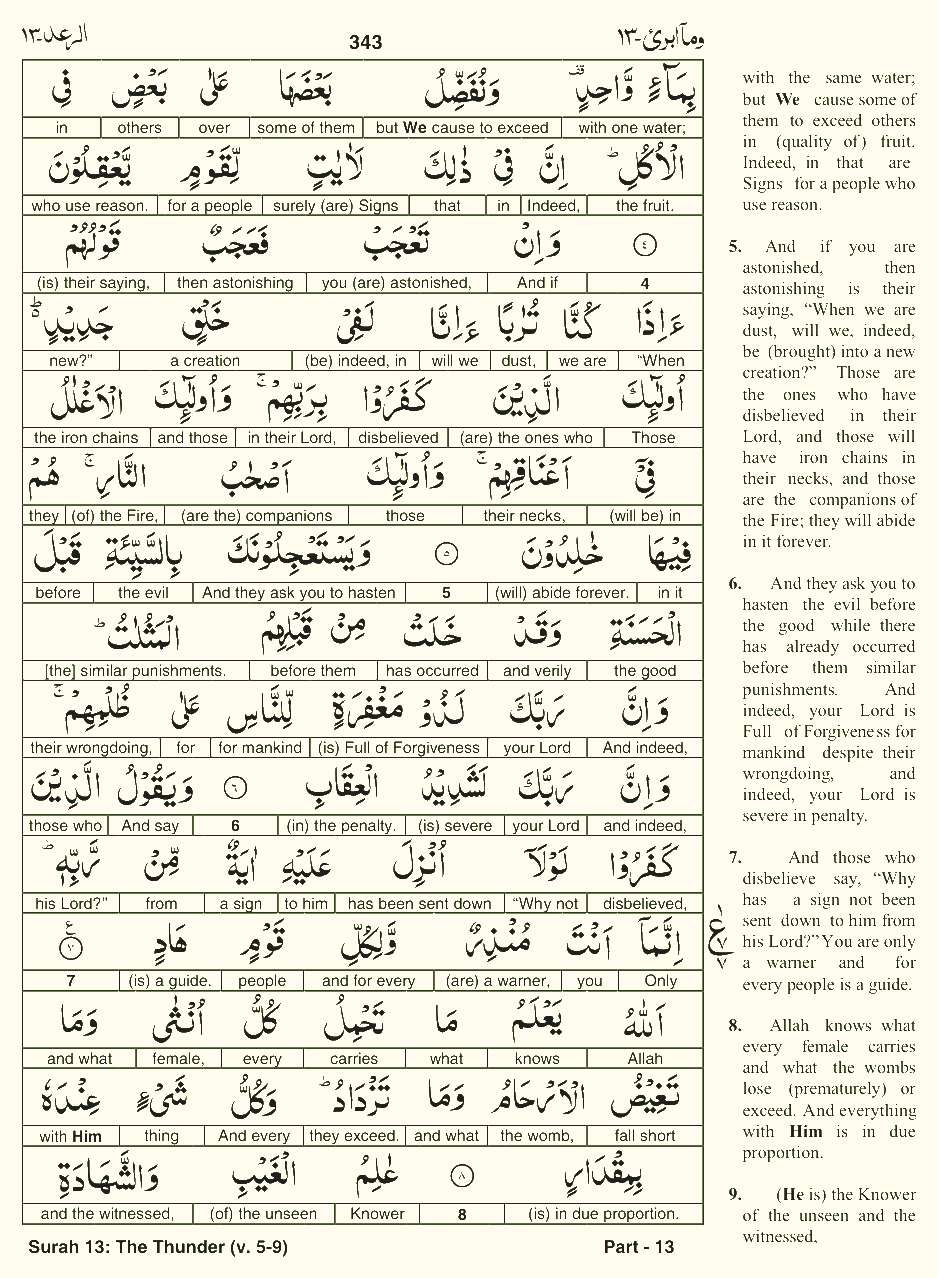 الرعد-١٣ 343 وما ابرئ-١٣
بِمَآءٍ وَّاحِدٍ وَنُفَضِّلُ بَعْضَهَا عَلٰى بَعْضٍ فِى
in others over some of them but We cause to exceed with one water;
الْاُكُلِ ؕ اِنَّ فِىْ ذٰلِكَ لَاٰيٰتٍ لِّقَوْمٍ يَّعْقِلُوْنَ
who use reason. for a people surely (are) Signs that in Indeed, the fruit.
﴿٤﴾ وَاِنْ تَعْجَبْ فَعَجَبٌ قَوْلُهُمْ
(is) their saying, then astonishing you (are) astonished, And if 4
ءَاِذَا كُنَّا تُرٰبًا ءَاِنَّا لَفِىْ خَلْقٍ جَدِيْدٍ ؕ
new?” a creation (be) indeed, in will we dust, we are “When
اُولٰٓئِكَ الَّذِيْنَ كَفَرُوْا بِرَبِّهِمْ ۚ وَاُولٰٓئِكَ الْاَغْلٰلُ
the iron chains and those in their Lord, disbelieved (are) the ones who Those
فِىْٓ اَعْنَاقِهِمْ ۚ وَاُولٰٓئِكَ اَصْحٰبُ النَّارِ ۚ هُمْ
they (of) the Fire, (are the) companions those their necks, (will be) in
فِيْهَا خٰلِدُوْنَ ﴿٥﴾ وَيَسْتَعْجِلُوْنَكَ بِالسَّيِّئَةِ قَبْلَ
before the evil And they ask you to hasten 5 (will) abide forever. in it
الْحَسَنَةِ وَقَدْ خَلَتْ مِنْ قَبْلِهِمُ الْمَثُلٰتُ ؕ
[the] similar punishments. before them has occurred and verily the good
وَاِنَّ رَبَّكَ لَذُوْ مَغْفِرَةٍ لِّلنَّاسِ عَلٰى ظُلْمِهِمْ ۚ
their wrongdoing, for for mankind (is) Full of Forgiveness your Lord And indeed,
وَاِنَّ رَبَّكَ لَشَدِيْدُ الْعِقَابِ ﴿٦﴾ وَيَقُوْلُ الَّذِيْنَ
those who And say 6 (in) the penalty. (is) severe your Lord and indeed,
كَفَرُوْا لَوْلَاۤ اُنْزِلَ عَلَيْهِ اٰيَةٌ مِّنْ رَّبِّهٖ ؕ
his Lord?” from a sign to him has been sent down “Why not disbelieved,
اِنَّمَاۤ اَنْتَ مُنْذِرٌ وَّلِكُلِّ قَوْمٍ هَادٍ ﴿٧﴾
7 (is) a guide. people and for every (are) a warner, you Only
اَللّٰهُ يَعْلَمُ مَا تَحْمِلُ كُلُّ اُنْثٰى وَمَا
and what female, every carries what knows Allah
تَغِيْضُ الْاَرْحَامُ وَمَا تَزْدَادُ ؕ وَكُلُّ شَىْءٍ عِنْدَهٗ
with Him thing And every they exceed. and what the womb, fall short
بِمِقْدَارٍ ﴿٨﴾ عٰلِمُ الْغَيْبِ وَالشَّهَادَةِ
and the witnessed, (of) the unseen Knower 8 (is) in due proportion.
Surah 13: The Thunder (v. 5-9) Part - 13
with the same water;
but We cause some of
them to exceed others
in (quality of) fruit.
Indeed, in that are
Signs for a people who
use reason.
5. And if you are
astonished, then
astonishing is their
saying, “When we are
dust, will we, indeed,
be (brought) into a new
creation?” Those are
the ones who have
disbelieved in their
Lord, and those will
have iron chains in
their necks, and those
are the companions of
the Fire; they will abide
in it forever.
6. And they ask you to
hasten the evil before
the good while there
has already occurred
before them similar
punishments. And
indeed, your Lord is
Full of Forgiveness for
mankind despite their
wrongdoing, and
indeed, your Lord is
severe in penalty.
7. And those who
disbelieve say, “Why
has a sign not been
sent down to him from
his Lord?” You are only
a warner and for
every people is a guide.
8. Allah knows what
every female carries
and what the wombs
lose (prematurely) or
exceed. And everything
with Him is in due
proportion.
9. (He is) the Knower
of the unseen and the
witnessed,